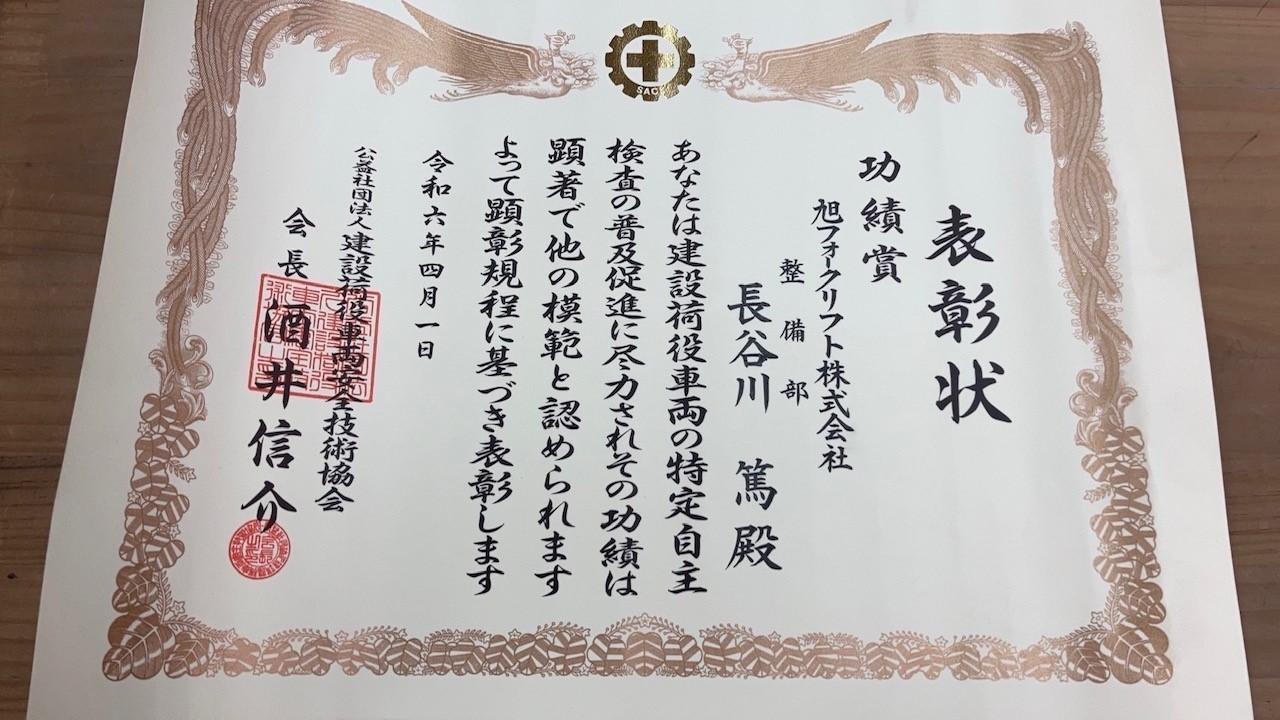 SACL
表彰状
功績賞
旭フォークリフト株式会社
整備部
長谷川 篤殿
あなたは建設荷役車両の特定自主
検査の普及促進に尽力されその功績は
顕著で他の模範と認められます
よって顕彰規程に基づき表彰します
令和六年四月一日
公益社団法人 建設荷役車両安全技術協会
会長 酒井信介